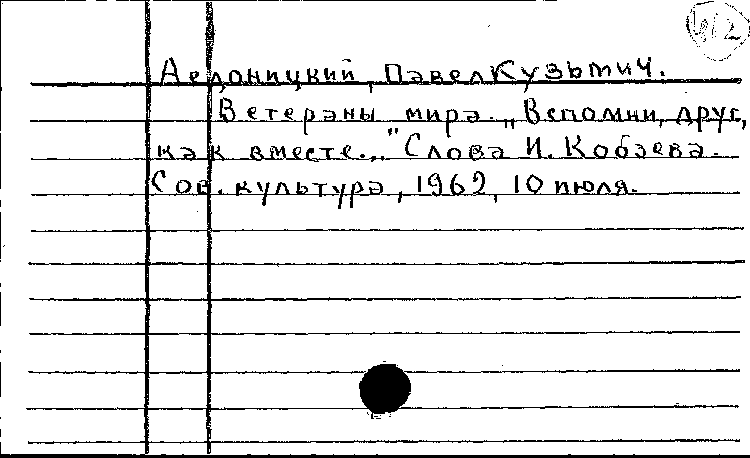 Аедоницкий, Павел Кузьмич.
Ветераны мира. „Вспомни, друг,
как вместе..." Слова И. Кобзева.
Сов. культура, 1962, 10 июля.